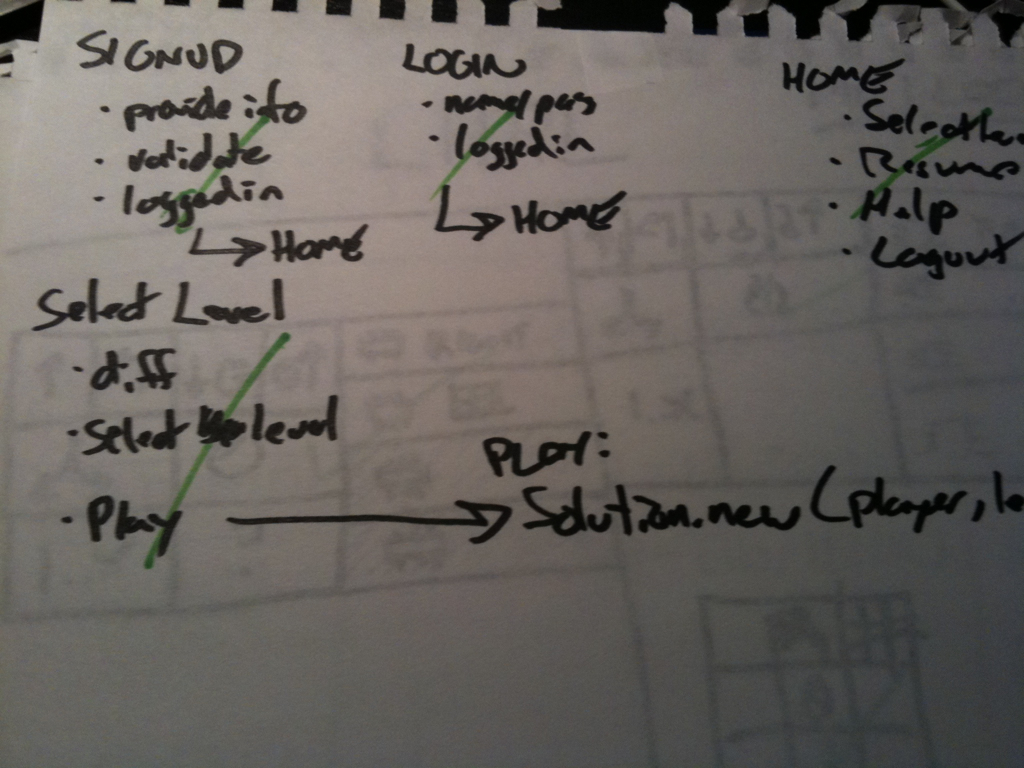 SIGNUP
· provide info
· validate
· loggedin
HOME
LOGIN
· name/pass
· loggedin
HOME
HOME
· Resume
· Help
· Logout
Select Level
· diff
· Select level
· Play
PLAY:
Solution.new (player, le